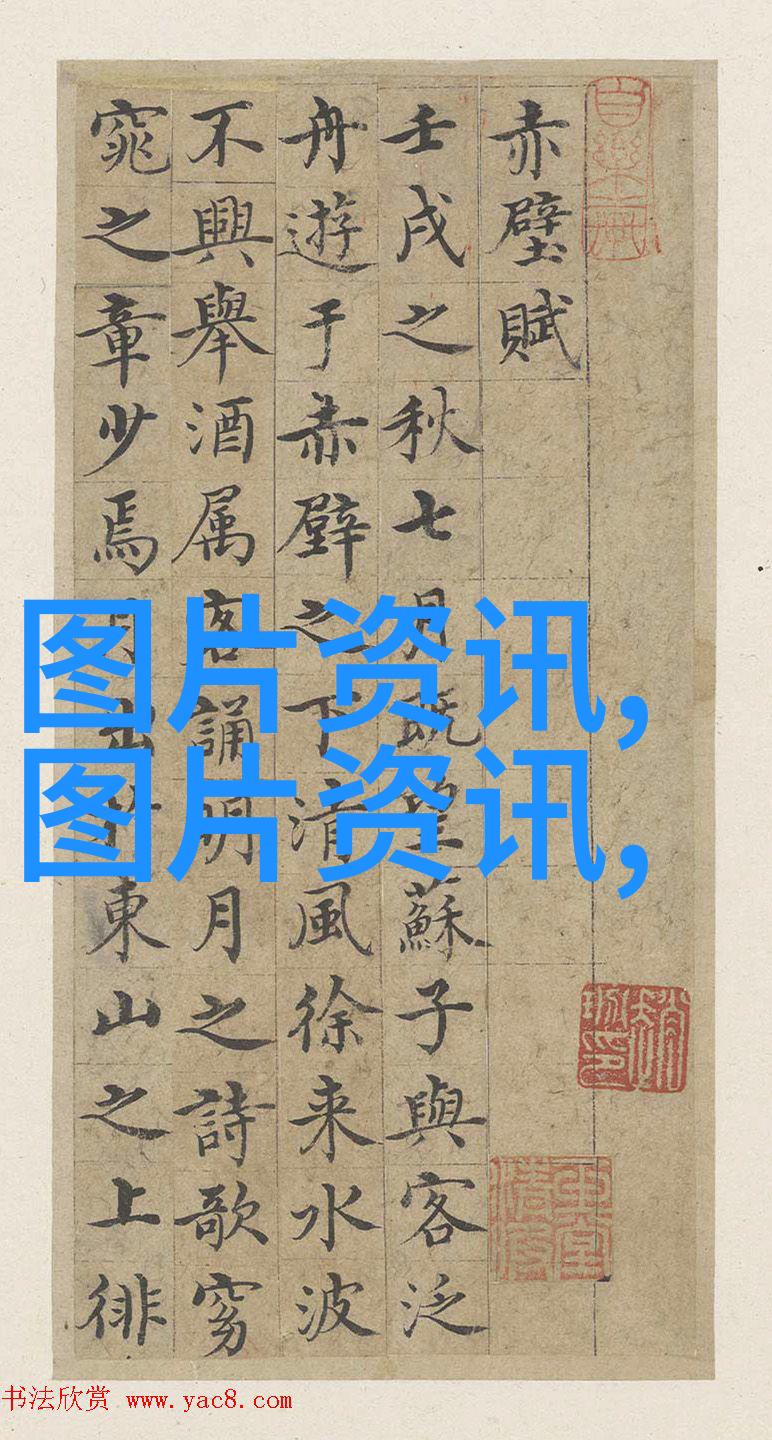 赤壁賦
壬戌之秋七月既望蘇子與客泛
舟遊于赤壁之下清風徐来水波
不興舉酒属客誦明月之詩歌窈
窕之章少焉月出於東山之上徘
图片资讯,
图片资讯,
书法欣赏 www.yac8.com